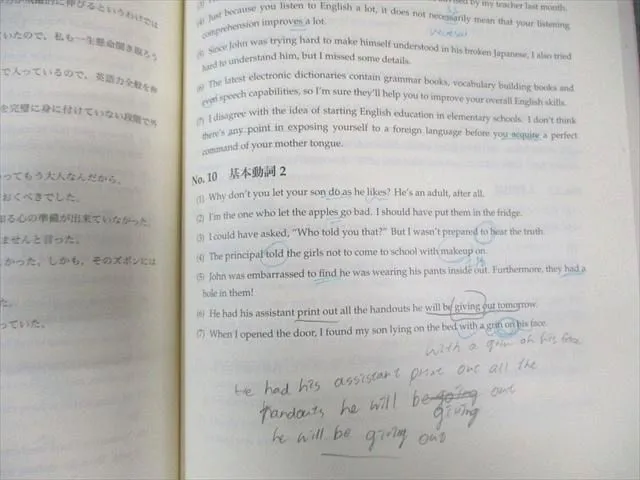 の飛躍的に伸びるというわけでは
いたので、私も一生懸命聞き取ろう
で入っているので、英語力全般を伸
を完璧に身に付けていない段階で外
ってもう大人なんだから。
おくべきでした。
知る心の準備が出来ていなかった。
ませんと言った。
かった。しかも、そのズボンには
た。
っていた。
by my teacher last month.
(4) Just because you listen to English a lot, it does not necessarily mean that your listening
comprehension improves a lot.
(5) Since John was trying hard to make himself understood in his broken Japanese, I also tried
hard to understand him, but I missed some details.
(6) The latest electronic dictionaries contain grammar books, vocabulary building books and
even speech capabilities, so I'm sure they'll help you to improve your overall English skills.
(7) I disagree with the idea of starting English education in elementary schools. I don't think
there's any point in exposing yourself to a foreign language before you acquire a perfect
command of your mother tongue.
No. 10 基本動詞 2
(1) Why don't you let your son do as he likes? He's an adult, after all.
(2) I'm the one who let the apples go bad. I should have put them in the fridge.
(3) I could have asked, "Who told you that?" But I wasn't prepared to hear the truth.
(4) The principal told the girls not to come to school with makeup on.
(5) John was embarrassed to find he was wearing his pants inside out. Furthermore, they had a
hole in them!
(6) He had his assistant print out all the handouts he will be giving out tomorrow.
(7) When I opened the door, I found my son lying on the bed with a gun on his face.
with a gun on his face
He had his assistant print out all the
handouts he will be going out
giving
he will be giving out